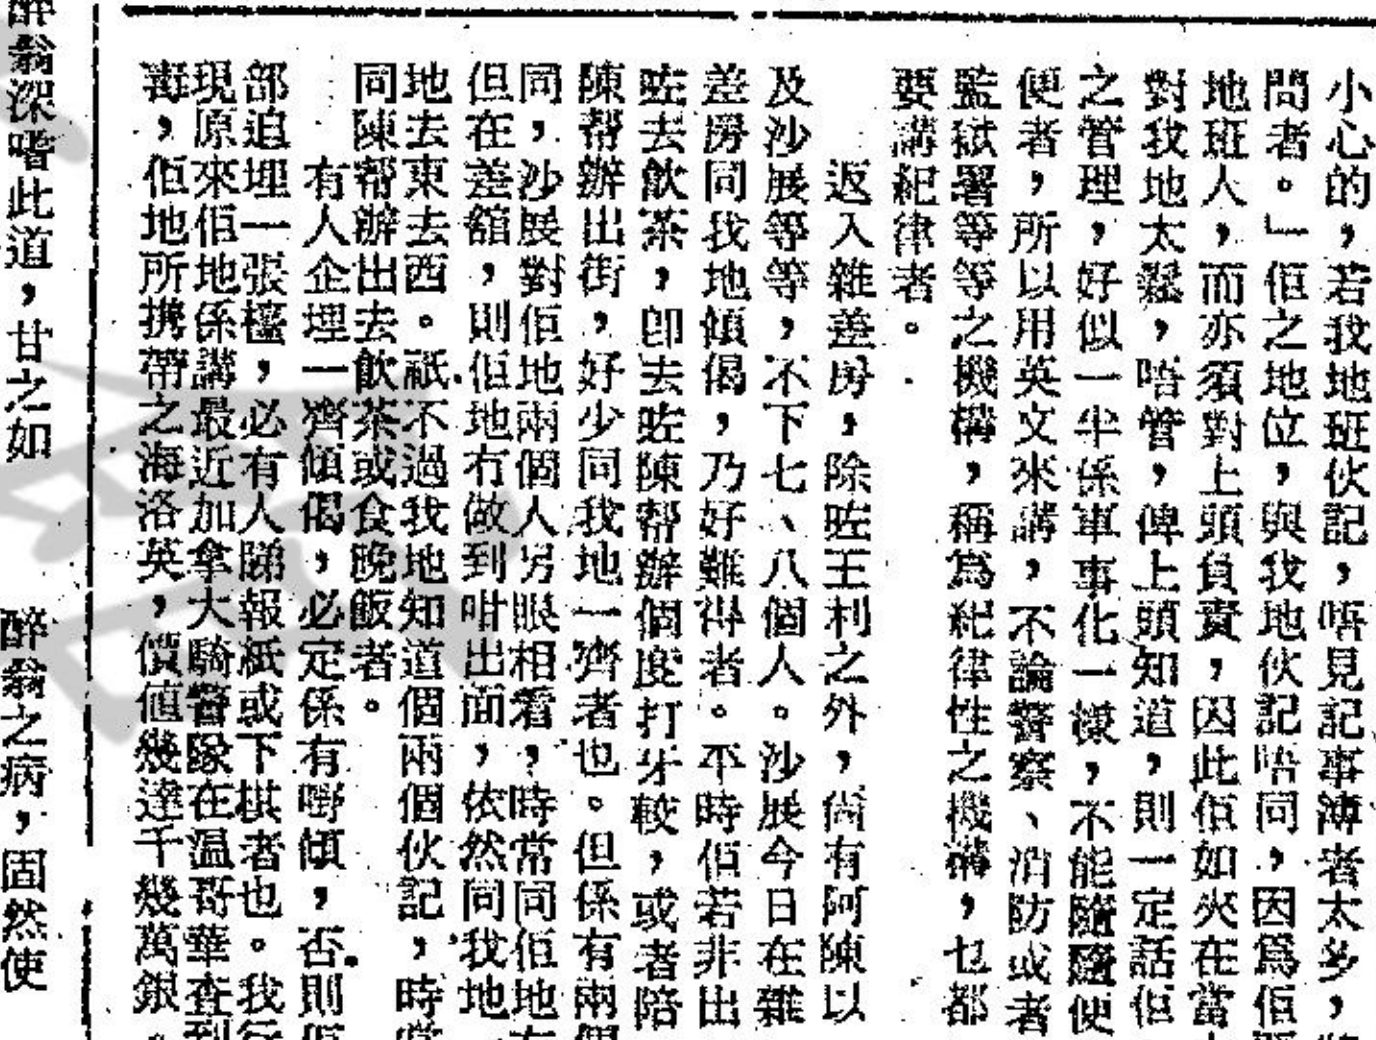 小心的，若我地班伙記，唔見記事溥者太多，
問者。」佢之地位，與我地伙記唔同，因爲佢
地班人，而亦須對上頭負責，因此佢如夾在當
對我地太鬆，唔管，俾上頭知道，則一定話佢
之管理，好似一半係軍事化一樣，不能隨隨便
便者，所以用英文來講，不論警察、消防或者
監獄署等等之機構，稱爲紀律性之機構，乜都
要講紀律者。
返入雜差房，除咗王利之外，尙有阿陳以
及沙展等等，不下七、八個人。沙展今日在雜
差房同我地傾偈，乃好難得者。平時佢若非出
咗去飲茶，卽去咗陳帮辦個度打牙較，或者陪
陳帮辦出街，好少同我地一齊者也。但係有兩個
同，沙展對佢地兩個人另眼相看，時常同佢地
但在差館，則佢地冇做到咁出面，依然同我地
地去東去西。祇不過我地知道個兩個伙記，時常
同陳帮辦出去飲茶或食晚飯者。
有人企埋一齊傾偈，必定係有嘢傾，否則
部迫埋一張檯，必有人睇報紙或下棋者也。我
現原來佢地係講最近加拿大騎警隊在温哥華查到
毒，佢地所携帶之海洛英，價値幾達千幾萬銀
醉翁深嗜此道，甘之如
醉翁之病，固然使